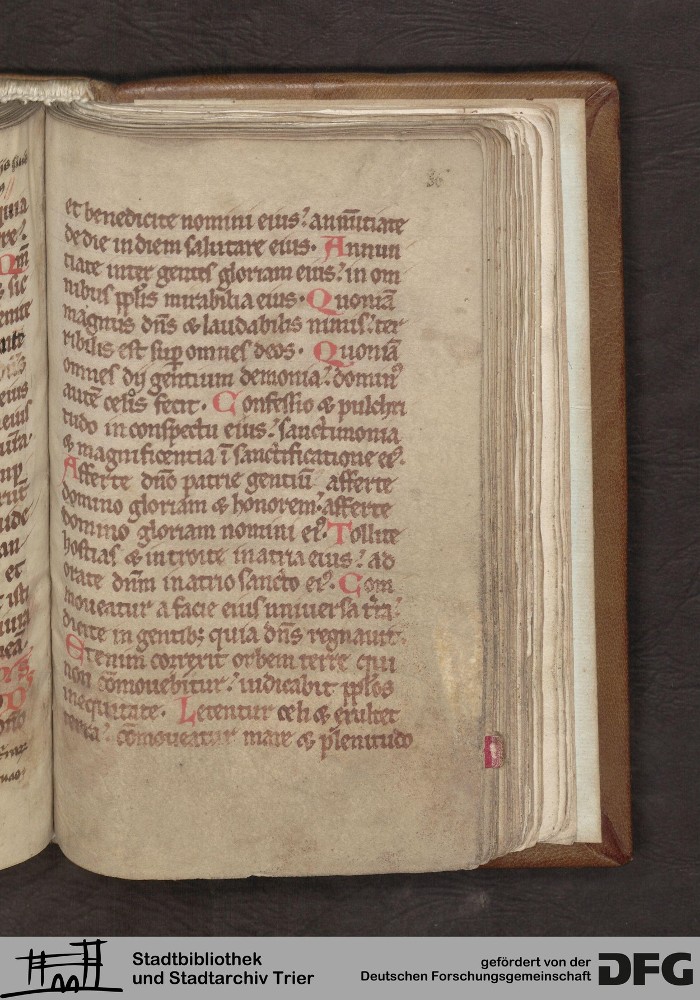 36
et benedicite nomini eius: annūtiate
de die indiem salutare eius. Annun
tiate inter gentes gloriam eius: in om
nibus ppl̄is mirabilia eius. Quoniā
magnus dn̄s & laudabilis nimis: ter
ribilis est sup̄ omnes deos. Quoniā
omnes dij gentium demonia: domin᷒
autē celos fecit. Confessio & pulchri
tudo in conspectu eius: sanctimonia
& magnificentia ī sanctificatione ei᷒.
Afferte dn̄o patrie gentiū afferte
domino gloriam & honorem: afferte
domino gloriam nomini ei᷒. Tollite
hostias & introite in atria eius: ad
orate dn̄m in atrio sancto ei᷒. Com
moueatur a facie eius uniuersa tr̄ra:
dicite in gentib; quia dn̄s regnauit.
Etenim correxit orbem terre qui
non cōmouebitur: iudicabit ppl̄os
in equitate. Letentur celi & exultet
terra: cōmoueatur mare & plenitudo
Stadtbibliothek
und Stadtarchiv Trier
gefördert von der
Deutschen Forschungsgemeinschaft
DFG